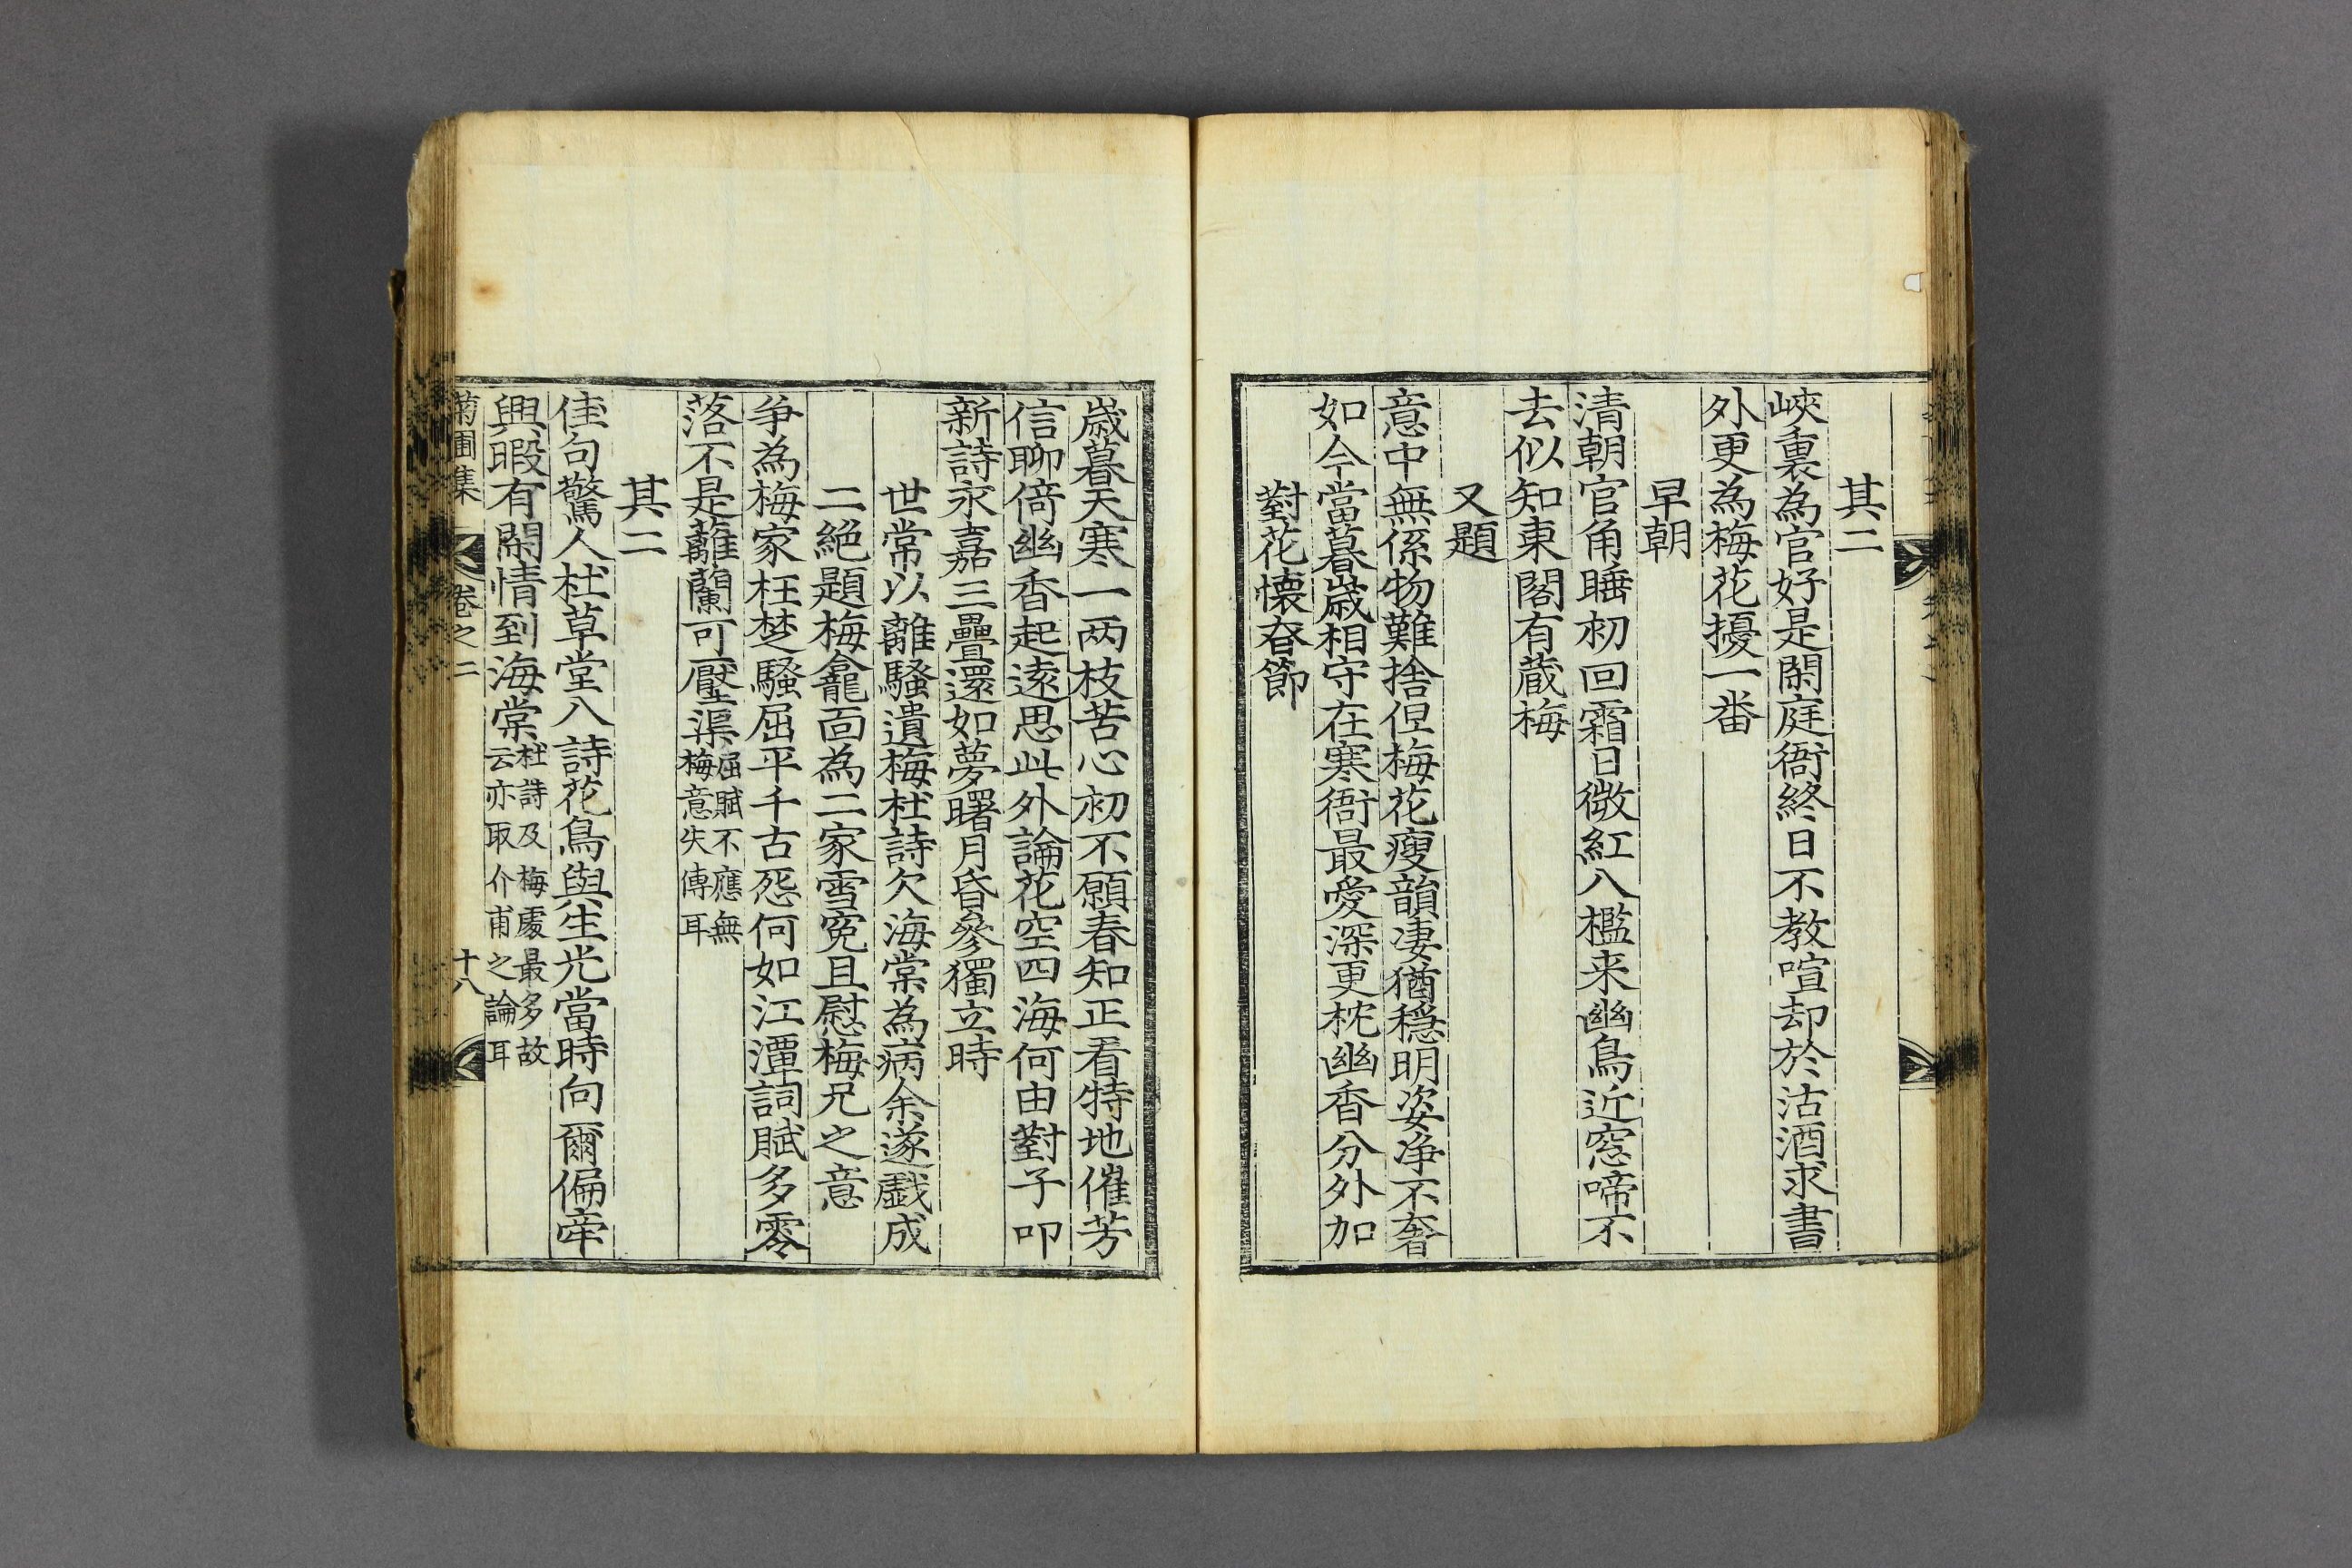 其二
峽裏為官好是閑庭衙終日不教喧却於沽酒求書
外更為梅花擾一番
早朝
清朝官角睡初回霜日微紅八檻来幽鳥近窓啼不
去似知東閣有蔵梅
又題
意中無係物難捨但梅花瘦韻凄猶穩明姿净不奢
如今當暮歲相守在寒衙最愛深更枕幽香分外加
對花懷春節
歲暮天寒一兩枝苦心初不願春知正看特地催芳
信聊倚幽香起遠思此外論花空四海何由對子叩
新詩永嘉三疊還如夢曙月昏參獨立時
世常以離騷遺梅杜詩欠海棠為病余遂戱成
二絕題梅龕面為二家雪寃且慰梅兄之意
爭為梅家枉楚騷屈平千古怨何如江潭詞賦多零
落不是蘺蘭可壓渠屈賦不應無梅意失傳耳
其二
佳句驚人杜草堂八詩花鳥與生光當時向爾偏牽
興暇有閑情到海棠杜詩及梅處最多故云亦取介甫之論耳
菊圃集 卷之二 十八